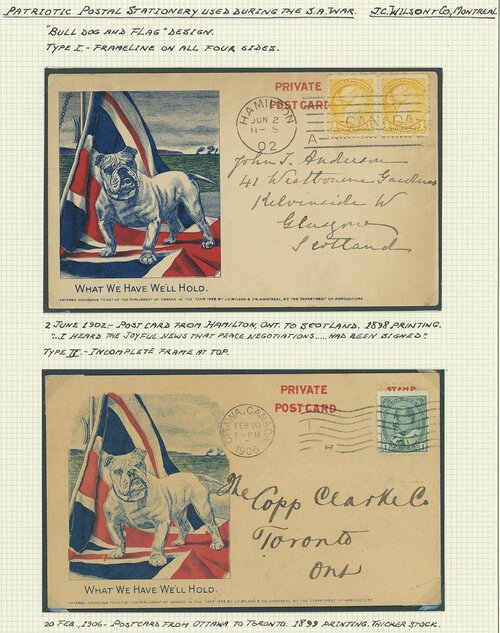 PATRIOTIC POSTAL STATIONERY USED DURING THE S.A. WAR. J.C. WILSON & CO, MONTREAL
"BULL DOG AND FLAG" DESIGN.
TYPE I.- FRAMELINE ON ALL FOUR SIDES.
PRIVATE
POST CARD
HAMILTON
JUN 2
11-5
02
CANADA
A
John T. Anderson
41 Westbourne Gardens
Kelvinside W
Glasgow
Scotland
WHAT WE HAVE WE'LL HOLD.
ENTERED ACCORDING TO ACT OF THE PARLIAMENT OF CANADA IN THE YEAR 1898 BY J.C. WILSON & CO. MONTREAL, AT THE DEPARTMENT OF AGRICULTURE.
2 JUNE 1902.- POSTCARD FROM HAMILTON, ONT. TO SCOTLAND. 1898 PRINTING.
"..I HEARD THE JOYFUL NEWS THAT PEACE NEGOTIATIONS.... HAD BEEN SIGNED".
TYPE II.- INCOMPLETE FRAME AT TOP.
PRIVATE STAMP
POST CARD
OTTAWA, CANADA
FEB 20
7-PM
1906
The Copp Clarke Co
Toronto
Ont
WHAT WE HAVE WE'LL HOLD.
ENTERED ACCORDING TO ACT OF THE PARLIAMENT OF CANADA IN THE YEAR 1898 BY J.C. WILSON & CO. MONTREAL, AT THE DEPARTMENT OF AGRICULTURE
20 FEB., 1906- POSTCARD FROM OTTAWA TO TORONTO. 1899 PRINTING. THICKER STOCK.